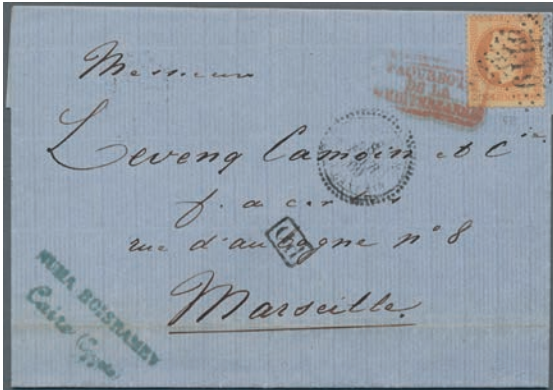 Messieurs
PAQUEBOTS
DE LA
MEDITERRANEE
Leveng Camoin & Cie
f. a
rue d'aubagne n° 8
PD
Marseille.
NUMA BOISRAMEY
Cairo (Egypte)